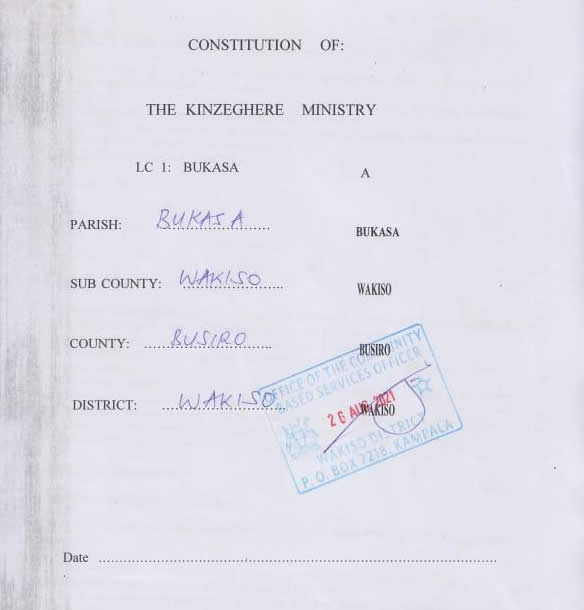 CONSTITUTION OF:
THE KINZEGHERE MINISTRY
LC 1: BUKASA A
PARISH: BUKASA BUKASA
SUB COUNTY: WAKISO WAKISO
COUNTY: BUSIRO BUSIRO
DISTRICT: WAKISO WAKISO
OFFICE OF THE COMMUNITY
BASED SERVICES OFFICER
26 AUG 2021
WAKISO DISTRICT
P. O. BOX 7218, KAMPALA
Date ........................................................................